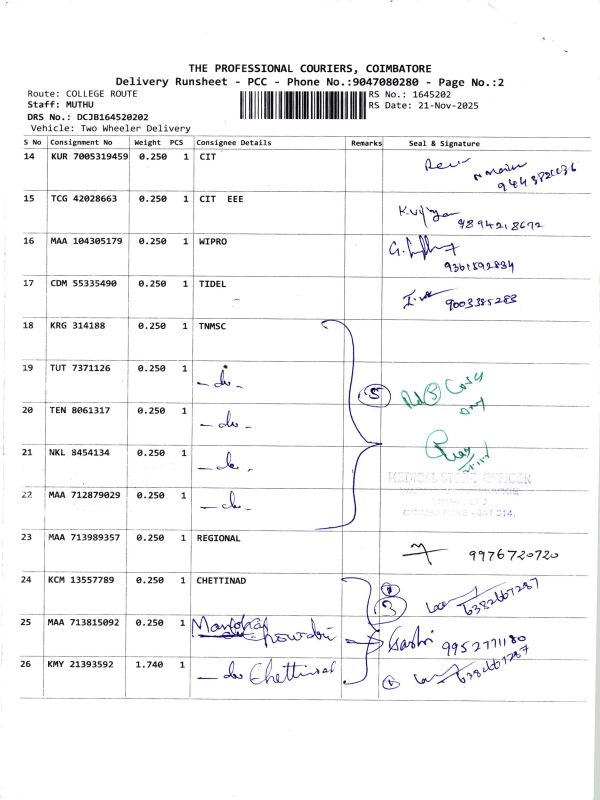 THE PROFESSIONAL COURIERS, COIMBATORE
Delivery Runsheet - PCC - Phone No.:9047080280 - Page No.:2
Route: COLLEGE ROUTE
RS No.: 1645202
Staff: MUTHU
RS Date: 21-Nov-2025
DRS No.: DCJB164520202
Vehicle: Two Wheeler Delivery
S No Consignment No Weight PCS Consignee Details Remarks Seal & Signature
14 KUR 7005319459 0.250 1 CIT
15 TCG 42028663 0.250 1 CIT EEE
9894218672
16 MAA 104305179 0.250 1 WIPRO
9361892834
17 CDM 55335490 0.250 1 TIDEL
9003385283
18 KRG 314188 0.250 1 TNMSC
19 TUT 7371126 0.250 1 -do-
5
20 TEN 8061317 0.250 1 -do-
21 NKL 8454134 0.250 1 -do-
MEDICAL STORE OFFICER
22 MAA 712879029 0.250 1 -do-
COIMBATORE - 641 014.
23 MAA 713989357 0.250 1 REGIONAL
9976720720
24 KCM 13557789 0.250 1 CHETTINAD
3
6382667287
25 MAA 713815092 0.250 1
9952771180
26 KMY 21393592 1.740 1 -do Chettinad
6382667287